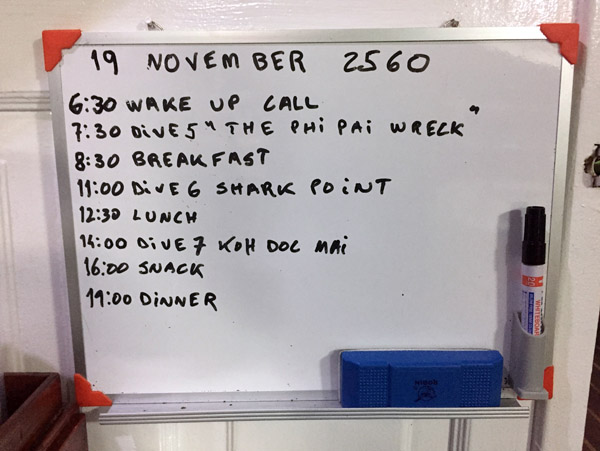 19 NOVEMBER 2560
6:30 WAKE UP CALL
7:30 DiVE 5 "THE PHi PAi WRECK"
8:30 BREAKFAST
11:00 DiVE 6 SHARK POiNT
12:30 LUNCH
14:00 DiVE 7 KOH DOC MAi
16:00 SNACK
19:00 DiNNER
WHITEBOARD